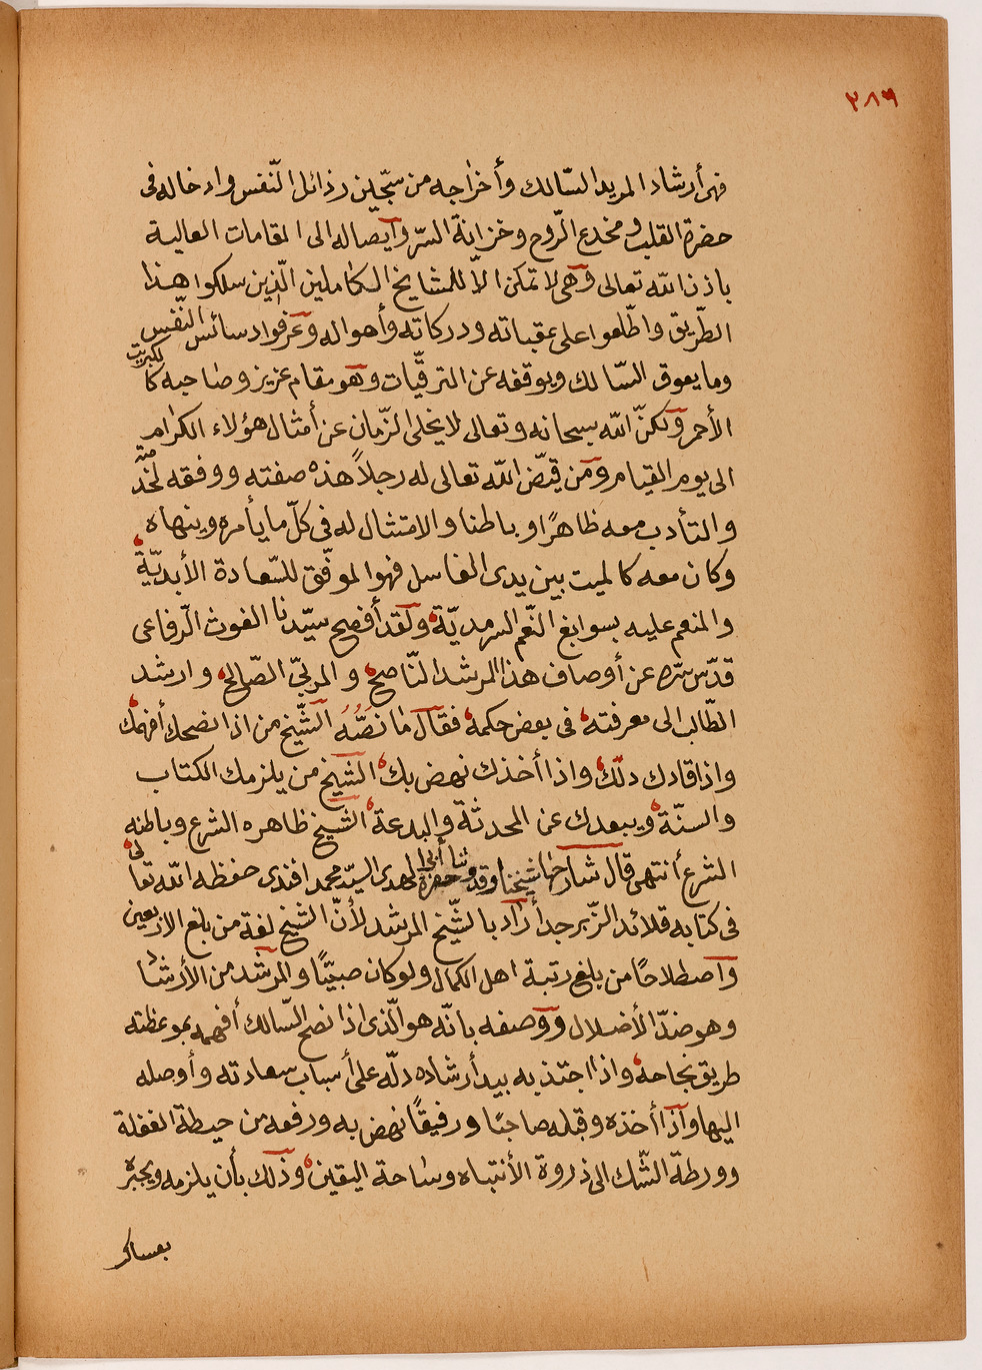 ٢٨٩
فهى أرشاد المريد السّالك وأخراجه من سجّين رذائل النّفس وادخاله فى
حضرة القلب ومخدع الرّوح وخزانة السرّ وآيصاله الى المقامات العالية
باذن الله تعالى وهى لا تمكن الاّ للمشايخ الكاملين الّذين سلكوا هذا
الطّريق واطّلعوا على عقباته ودركاته وأحواله وعرفوا دسائس النّفس
وما يعوق السّالك ويوقفه عن الترقّيات وهو مقام عزيز وصاحبه كالكبريت
الأحمر ولكنّ الله سبحانه وتعالى لا يخلى الزّمان عن أمثال هؤلاء الكرام
الى يوم القيام ومن قيّض الله تعالى له رجلاً هذه صفته ووفقه لخدمته
والتأدب معه ظاهرًا وباطنا والامتثال له فى كلّ ما يأمره وينهاه
وكان معه كالميت بين يدى الغاسل فهو الموفّق للسّعادة الأبديّة
والمنعم عليه بسوابغ النّعم السرمديّة ولقد أفصح سيّدنا الغوث الرّفاعى
قدّس سرّه عن أوصاف هذا المرشد النّاصح والمربّى الصّالح وارشد
الطّالب الى معرفته فى بعض حكمه فقال مٰا نَصُّهُ الشّيخ من اذا نصحك أفهمك
واذا قادك دلّك واذا أخذك نهض بك الشّيخ من يلزمك الكتاب
والسنّة ويبعدك عن المحدثة والبدعة الشّيخ ظاهره الشرع وباطنه
الشرع أنتهى قال شارحها شيخنا وقدوتنا حضرة أبى الهدى السيّد محمد افندى حفظه الله تعالى
فى كتابه قلائد الزّبرجد أراد بالشّيخ المرشد لأنّ الشيخ لغة من بلغ الاربعين
وآصطلاحًا من بلغ رتبة اهل الكمال ولو كان صبيًّا والمرشد من الأرشاد
وهو ضدّ الأضلال ووصفه بانّه هو الّذى اذا نصح السّالك أفهمه بموعظته
طريق نجاحه واذا اجتذبه بيد أرشاده دلّه على أسباب سعادته وأوصله
اليها وآذا أخذه وقبله صاحبًا ورفيقًا نهض به ورفعه من حيطة الغفلة
وورطة الشّك الى ذروة الأنتباه وسٰاحة اليقين وذلك بأن يلزمه ويجبره
بعساكر